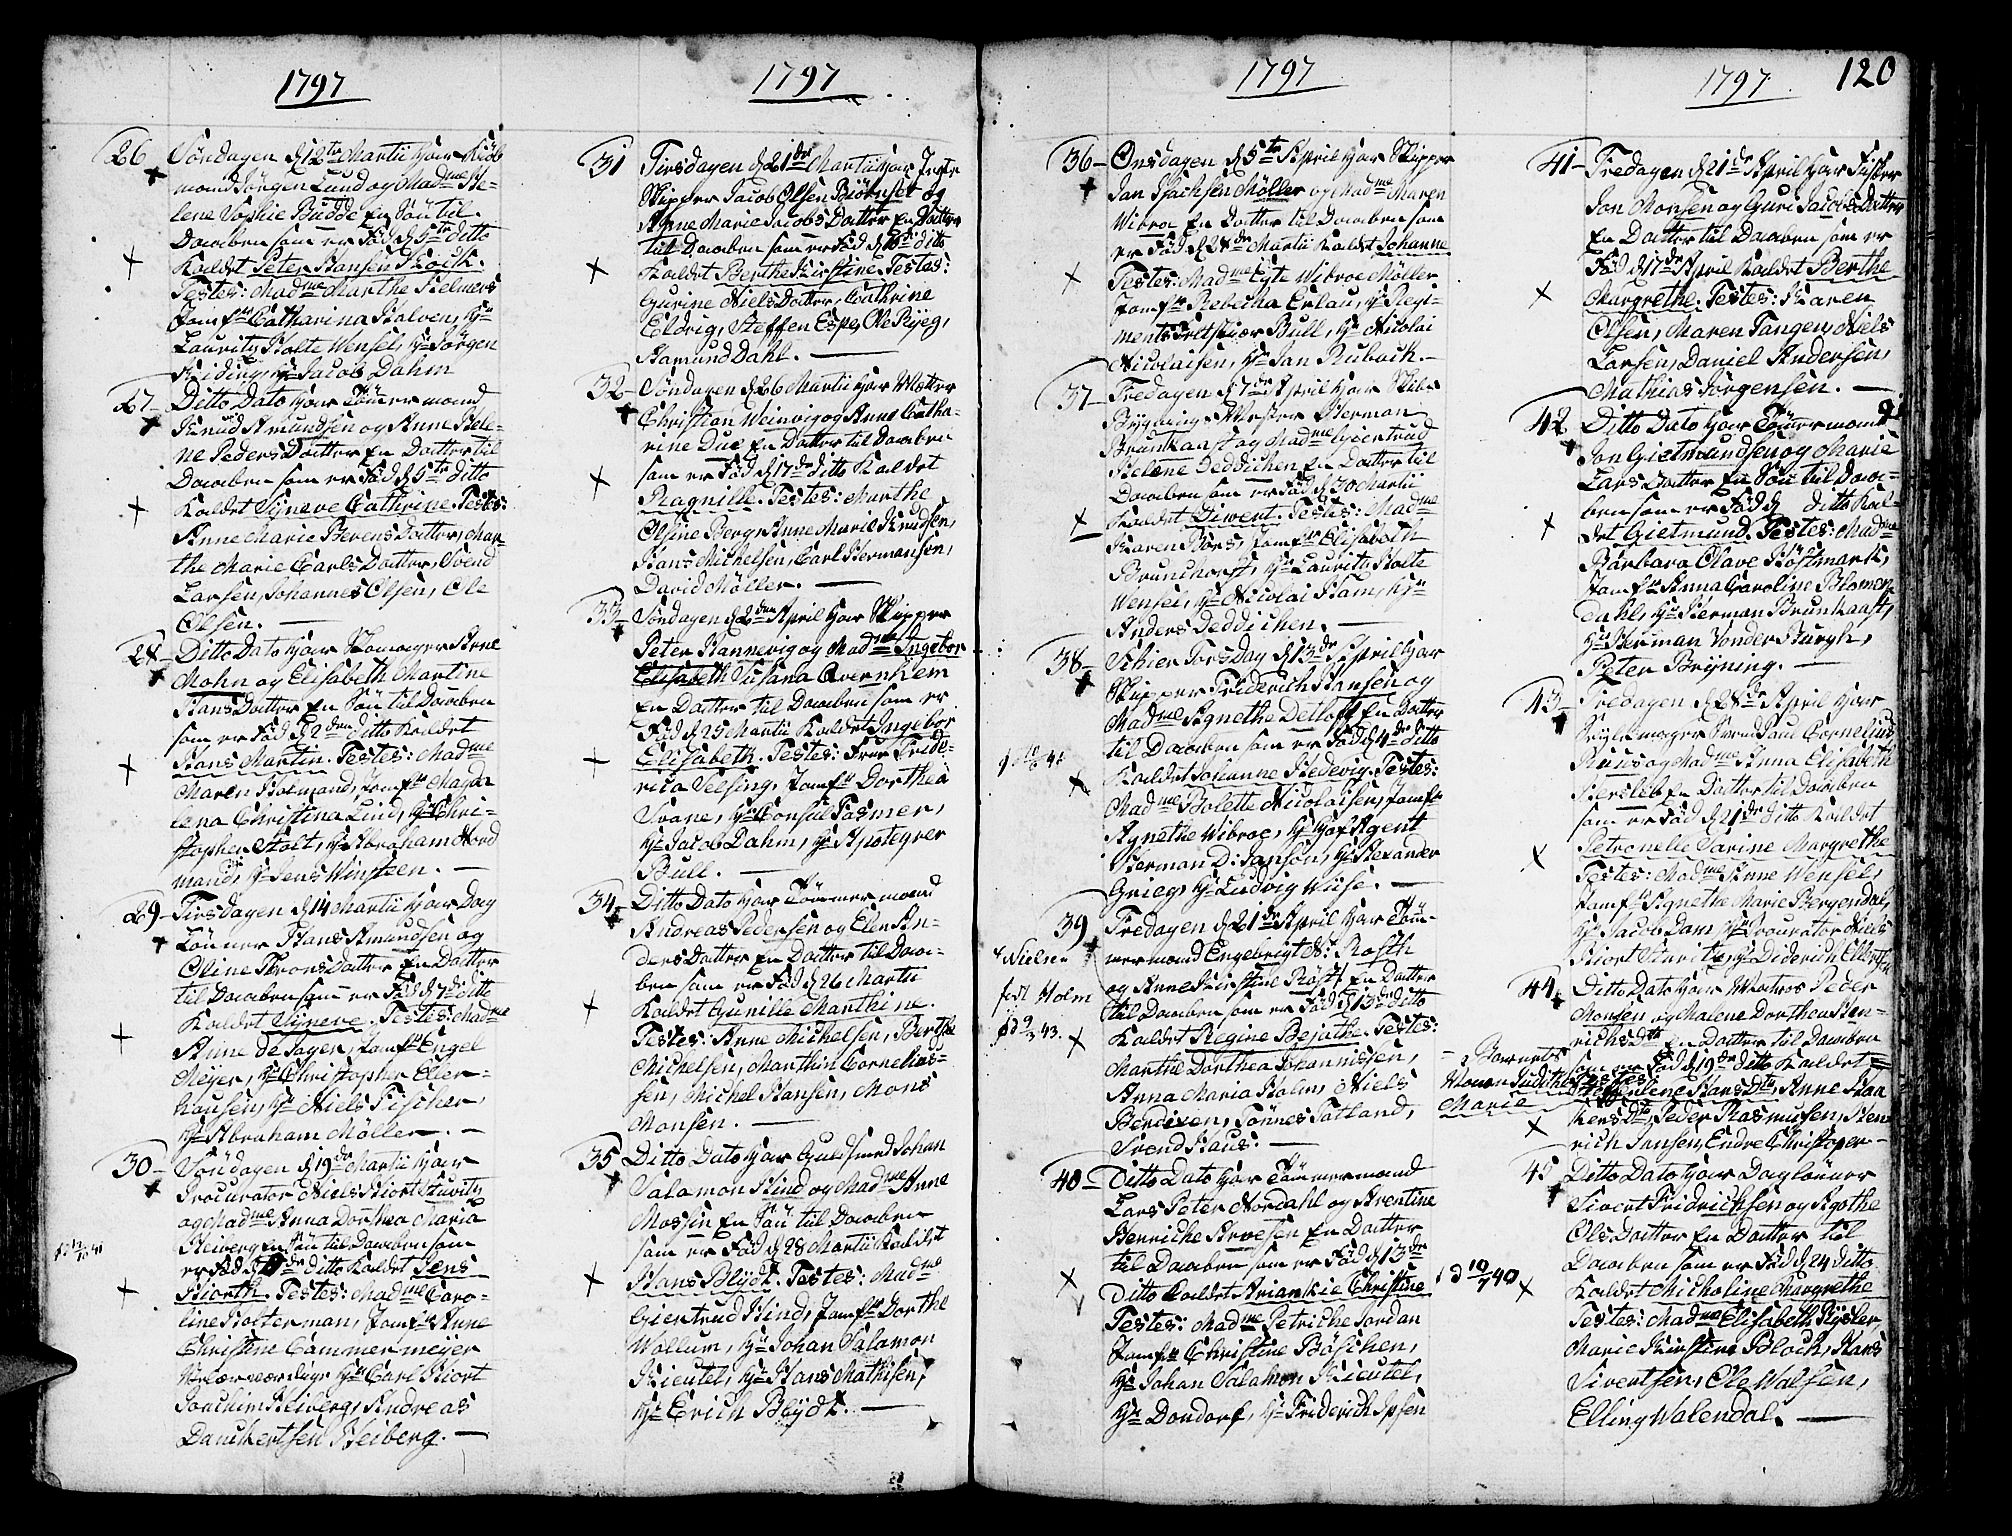 1797
26 Söndagen d 12te Martii Har Kiöb
mand Jörgen Lund og Mad:me He-
lene Sophie Budde En Sön til
Dawben som er Föd d 5te ditto
Kaldet Peter Hansen Kock.
Testes: Mad:me Marthe Helmers
Jomfr Catharina Halven, Hr
Lauritz Holte Wensel, Hr Jörgen
Kiding, Hr Jacob Dahm
27 Ditto Dato Har Tömmermand
Knud Amundsen og Anne Hele-
ne Peders Datter En Datter til
Dawben som er Föd d 5te ditto
Kaldet Synneve Cathrine. Testes:
Anne Marie Berens Datter, Mar-
the Marie Carls Datter, Svend
Larsen, Johannes Olsen, Ole
Olsen.
28 Ditto Dato Har Skomager Arne
Mohn og Elisabeth Martine
Hans Datter En Sön til Dawben
som er Föd d 2den ditto Kaldet
Hans Martin. Testes: Mad:me
Maren Holmand, Jomfr Magda
lena Christina Lind, Hr Chri-
stopher Stolt, Hr Abraham Nord
mand, Hr Jens Winsteen.
29 Tirsdagen d 14 Martii Har Dag
Lönner Hans Amundsen og
Oline Throns Datter En Datter
til Dawben som er Föd d 7de ditto
Kaldet Synneve. Testes: Mad:me
Anne de Fagen, Jomfr Engel
Meyer, Hr Christopher Eler-
housen, Hr Niels Fischer,
Hr Abraham Möller.
30 Söndagen d 19de Martii Har
Procurator Niels Hiort Stuvitz
og Mad:me Anna Dorthea Maria
Heiberg En Sön til Dawben som
er Föd d ditto Kaldet Jens
Hiorth. Testes: Mad:me Caro-
line Holterman, Jomfr Anne
Christine Cammermeyer
Velærværdige Hr Carl Hiort
Joachim Heiberg, Andreas
Danckertsen Heiberg.
1797
31 Tirsdagen d 21de Martii Har Jægte
Skipper Jacob Olsen Biörnset og
Anne Marie Jacobs Datter En Datter
til Dawben som er Föd d 16de ditto
Kaldet Berthe Kirstine. Testes:
Gurine Niels Datter, Cathrine
Eldrig, Steffen Espe, Ole Ryeg,
Hamund Dahl.
32 Söndagen d 26 Martii Har Mætter
Christian Weinvig og Anne Catha-
rine Due En Datter til Dawben
som er Föd d 17de ditto Kaldet
Ragnille. Testes: Marthe
Olsine Berg, Anne Marie Knudsen,
Hans Michelsen, Carl Hermansen,
David Möller.
33 Söndagen d 2den April Har Skipper
Peter Rannevig og Mad:me Ingebor
Elisabeth Susana Qvernhem
En Datter til Dawben som er
Föd d 25 Martii Kaldet Ingebor
Elisabeth. Testes: Frue Fride-
rica Velsing, Jomfr Dorthea
Svane, Hr Consul Fasmer,
Hr Jacob Dahm, Hr Apoteger
Bull.
34 Ditto Dato Har Tömmermand
Andreas Pedersen og Elen An-
ders Datter En Datter til Daw-
ben som er Föd d 26 Martii
Kaldet Gunille Marthine.
Testes: Anne Michelsen, Berthe
Michelsen, Marthin Cornelius-
sen, Michel Hansen, Mons
Monsen.
35 Ditto Dato Har Guldsmed Johan
Salamon Hind og Mad:me Anne
Mossin En Sön til Dawben
som er Föd d 28 Martii Kaldet
Hans Blydt. Testes: Mad:me
Giertrud Hind, Jomfr Dorthe
Wollum, Hr Johan Salamon
Kieutel, Hr Hans Mathisen,
Hr Erich Blydt.
1797
36 Onsdagen d 5te April Har Skipper
Jan Jachsen Möller og Mad:me Maren
Wibroe En Datter til Dawben som
er Föd d 28de Martii Kaldet Johanne
Testes: Mad:me Cyte Wibroe Möller
Jomfr Rebecha Erlau, Hr Regi-
ments Feltskiær Bull, Hr Nicolai
Nicolaisen, Hr Jan Rubach.
37 Fredagen d 7de April Har Skibs
Bygnings Mester Herman
Brunkaast og Mad:me Giertrud
Helene Deddichen En Datter til
Dawben som er Föd d 30 Martii
Kaldet Diwert. Testes: Mad:me
Karen Börs, Jomfr Elisabeth
Brunchorst, Hr Lauritz Holte
Wensel, Hr Nicolai Ham, Hr
Anders Deddichen.
38 Schier Torsdag d 13de April Har
Skipper Friderich Hansen og
Mad:me Agnethe Detloff En Datter
til Dawben som er Föd d 4de ditto
Kaldet Johanne Hedevig. Testes:
Mad:me Bolette Nicolaisen, Jomfr
Agnethe Wibroe, Hr Hof Agent
Herman D: Janson, Hr Alexander
Grieg, Hr Ludvig Wiise.
39 Fredagen d 21de April Har Töm-
mermand Engebrigt Os: Rosth
og Anne Kirstine Röst En Datter
til Dawben som er Föd d 13de ditto
Kaldet Regine Bejathe. Testes:
Marthe Dorthea Johannissen,
Anna Maria Holm, Niels
Berdixen, Tönnes Totland,
Svend Haus.
Nielsen
fød Holm
40 Ditto Dato Har Tömmermand
Lars Peter Nordahl og Arentine
Henriche Arvesen En Datter
til Dawben som er Föd d 13de
Ditto Kaldet Ariankie Christine
Testes: Mad:me Petriche Jordan
Jomfr Christine Böschen,
Hr Johan Salamon Kieutel,
Hr Dondorf, Hr Friderich Ipsen
1797
120
41 Fredagen d 21de April Har Fisker
Jon Monsen og Guri Jacobs Datter
En Datter til Dawben som er
Föd d 17de April Kaldet Berthe
Margrethe. Testes: Karen
Olsen, Maren Tangen, Niels
Larsen, Daniel Andersen,
Mathias Jörgensen.
42 Ditto Dato Har Tömmermand
Jon Gietmundsen og Marie
Lars Datter En Sön til Daw-
ben som er Föd d ditto Kal-
det Gietmund. Testes: Mad:me
Barbara Olave Höstmark,
Jomfr Anna Caroline Blomen
dahl, Hr Herman Brunkaast,
Hr Herman Vonder Burgh,
Peter Bryning.
43 Fredagen d 28de April Har
Rygtemager Svend Sam Cornelius
Ruus og Mad:me Anna Elisabeth
Hersleb En Datter til Dawben
som er Föd d 21de ditto Kaldet
Petronelle Sarine Margrethe
Testes: Mad:me Anne Wensel,
Jomfr Agnethe Marie Bergendal,
Hr Jacob Dam, Hr Procurator Niels
Hiort Stuvitz, Hr Diderich Ellertsen
44 Ditto Dato Har Matros Peder
Monsen og Malene Dorthea Hen-
richsdtr En Datter til Dawben
som er Föd d 19de ditto Kaldet
Barnets
Navn Judithe
Marie
Testes: Helene Hansdtr, Anne Haa
kensdtr, Peder Rasmusen, Hen
rich Jansen, Endre Christoper-
45 Ditto Dato Har Daglönner
Sivert Fridrichsen og Agothe
Ols Datter En Datter til
Dawben som er Föd d 24 ditto
Kaldet Micholine Margrethe
Testes: Mad:me Elisabeth Rysler,
Marie Kirstine Bloch, Hans
Sivertsen, Ole Walsen,
Elling Walendal.